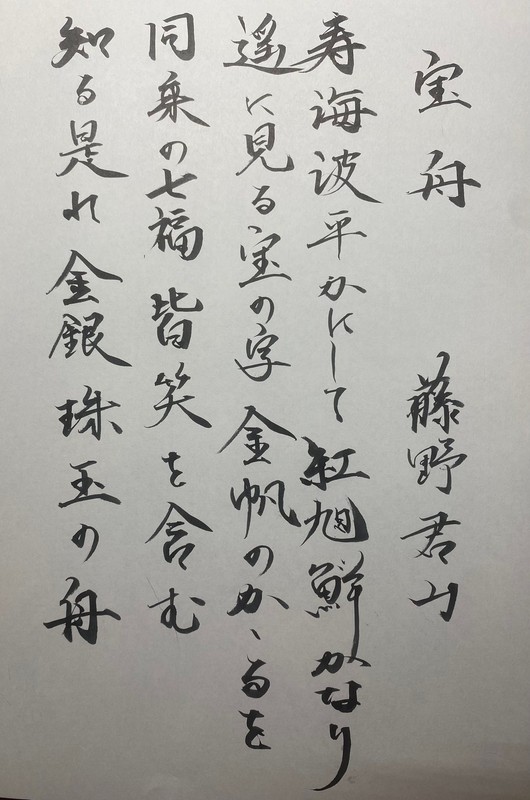 宝舟　藤野君山
寿海波平かにして紅旭鮮かなり
遥に見る宝の字金帆のかゝるを
同乗の七福皆笑を含む
知る是れ金銀珠玉の舟